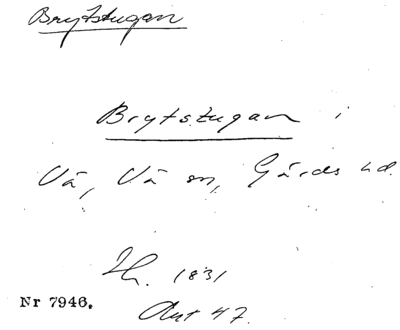 Brytstugan
Brytstugan i
Vä, Vä sn, Gärds hd.
1831
Nr 7946.
Akt 47.